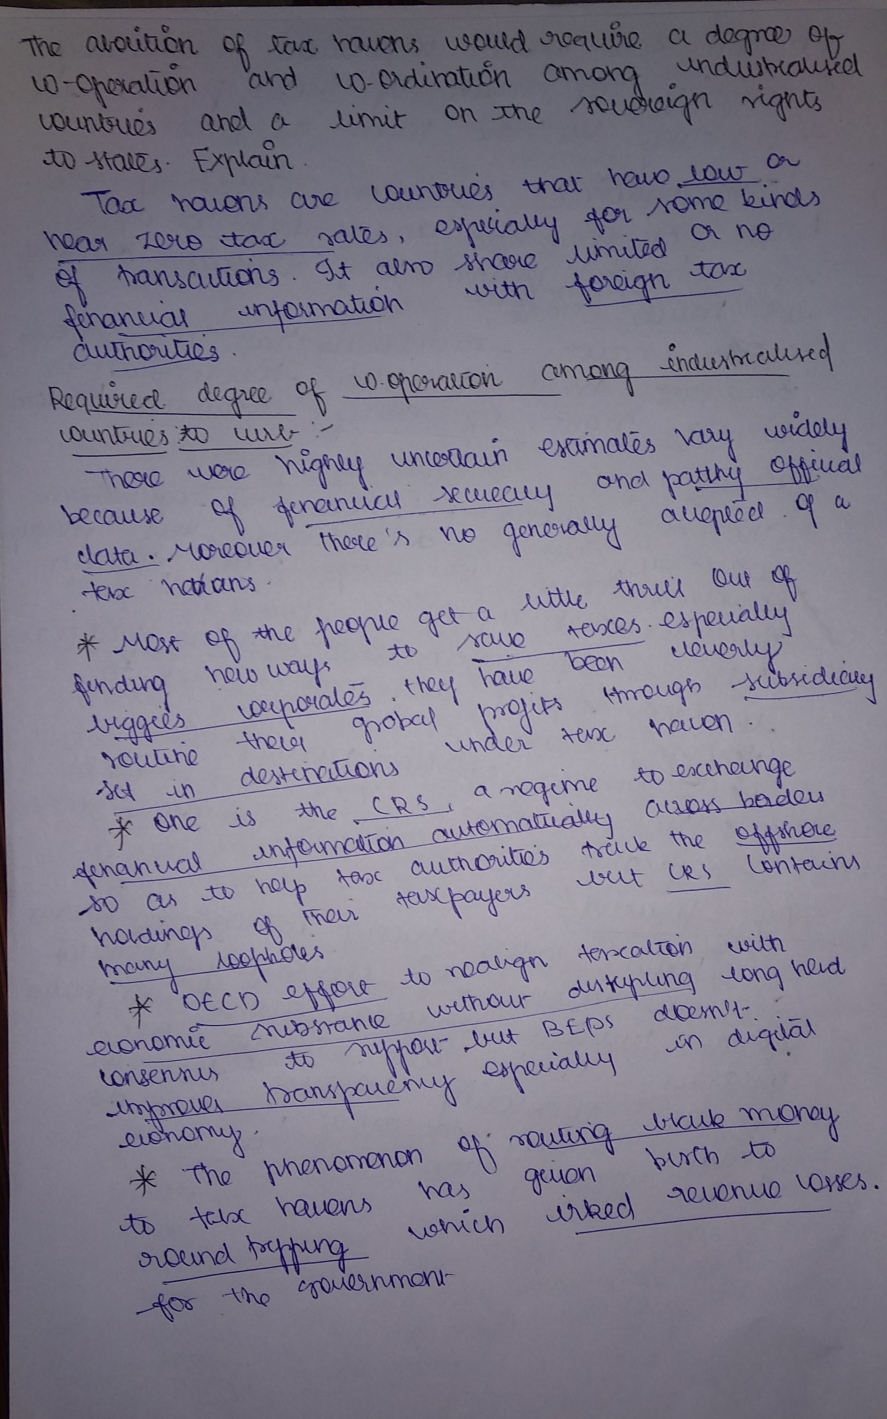 The abolition of tax havens would require a degree of
co-operation and co-ordination among industrialised
countries and a limit on the sovereign rights
to states. Explain.
Tax havens are countries that have low or
near zero tax rates, especially for some kinds
of transactions. It also share limited or no
financial information with foreign tax
authorities.
Required degree of co-operation among industrialised
countries to curb :-
There were highly uncertain estimates vary widely
because of financial secrecy and patchy official
data. Moreover there's no generally accepted of a
tax
* Most of the people get a little thrill out of
finding new ways to save taxes. especially
biggies corporates. they have been cleverly
routine their global profits through subsidiary
set in destinations under tax haven.
* One is the CRS, a regime to exchange
financial information automatically across borders
so as to help tax authorities track the offshore
holdings of their taxpayers but CRS contains
many loopholes
* OECD effort to realign taxation with
economic substance without disrupting long held
consensus to support but BEPS doesn't
improves transparency especially in digital
economy.
* The phenomenon of routing black money
to tax havens has given birth to
round tripping which irked revenue losses.
for the government